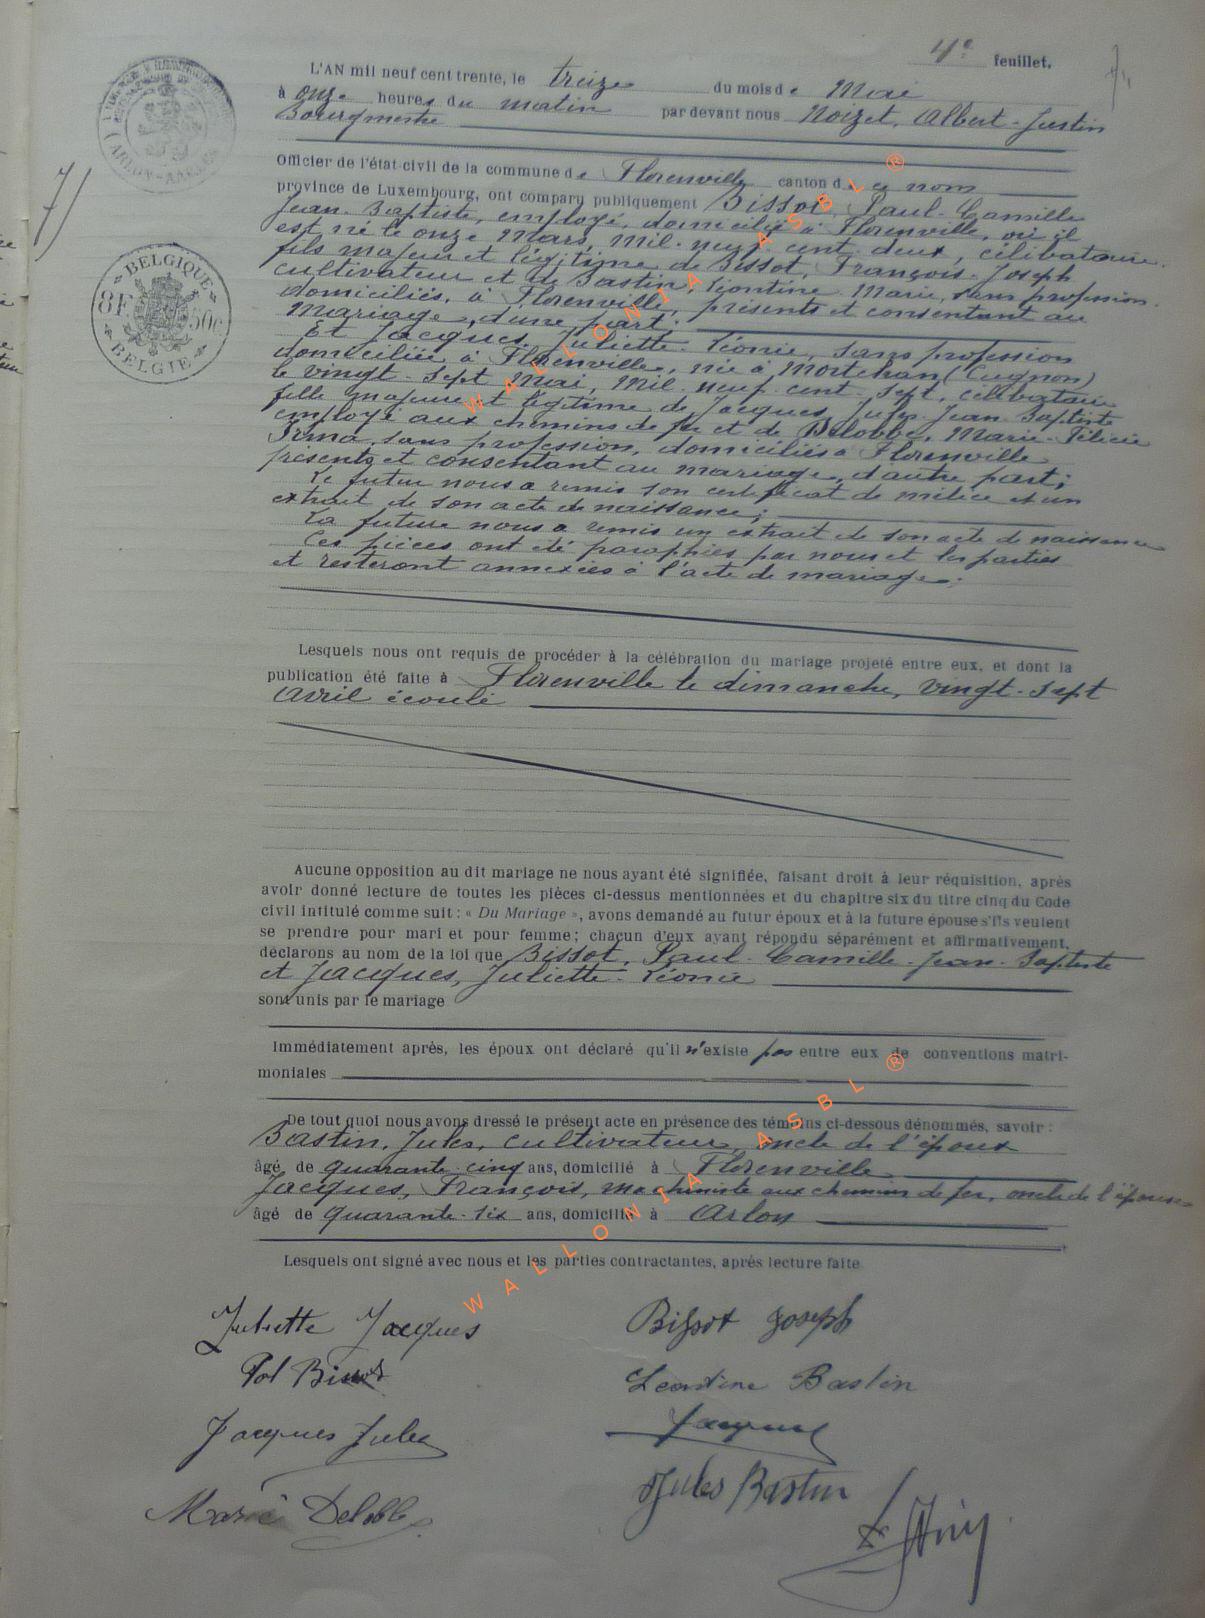 4e feuillet.
7/
L'AN mil neuf cent trente, le treize du mois de Mai
à onze heures du matin par devant nous Noizet, Albert-Justin
Bourgmestre
Officier de l'état-civil de la commune de Florenville canton de ce nom
province de Luxembourg, ont comparu publiquement Bissot, Paul-Camille
Jean-Baptiste, employé, domicilié à Florenville, où il
est né le onze Mars, mil-neuf-cent-deux, célibataire
fils majeur et légitime de Bissot, François-Joseph
cultivateur et de Bastin, Léontine-Marie, sans profession
domiciliés, à Florenville, présents et consentant au
mariage, d'une part.
Et Jacques, Juliette-Léonie, sans profession
domiciliée à Florenville, née à Mortehan (Cugnon)
le vingt-sept Mai, mil-neuf-cent-sept, célibataire
fille majeure et légitime de Jacques, Jules-Jean-Baptiste
employé aux chemins de fer et de Delobbe, Marie-Félicie
Irma, sans profession, domiciliés à Florenville
présents et consentant au mariage, d'autre part;
Le futur nous a remis son certificat de milice et un
extrait de son acte de naissance;
La future nous a remis un extrait de son acte de naissance
Ces pièces ont été paraphées par nous et les parties
et resteront annexées à l'acte de mariage;
Lesquels nous ont requis de procéder à la célébration du mariage projeté entre eux, et dont la
publication été faite à Florenville le dimanche, vingt-sept
avril écoulé
Aucune opposition au dit mariage ne nous ayant été signifiée, faisant droit à leur réquisition, après
avoir donné lecture de toutes les pièces ci-dessus mentionnées et du chapitre six du titre cinq du Code
civil intitulé comme suit : « Du Mariage », avons demandé au futur époux et à la future épouse s'ils veulent
se prendre pour mari et pour femme ; chacun d'eux ayant répondu séparément et affirmativement,
déclarons au nom de la loi que Bissot, Paul-Camille-Jean-Baptiste
et Jacques, Juliette-Léonie
sont unis par le mariage
Immédiatement après, les époux ont déclaré qu'il n'existe pas entre eux de conventions matri-
moniales
De tout quoi nous avons dressé le présent acte en présence des témoins ci-dessous dénommés, savoir :
Bastin, Jules, cultivateur, oncle de l'époux
âgé de quarante-cinq ans, domicilié à Florenville
Jacques, François, machiniste aux chemins de fer, oncle de l'épouse
âgé de quarante-six ans, domicilié à Arlon
Lesquels ont signé avec nous et les parties contractantes, après lecture faite
Juliette Jacques
Bissot Joseph
Pol Bissot
Léontine Bastin
Jacques Jules
Jacques
Jules Bastin
Marie Delobbe
BELGIQUE
8F. 50c
BELGIE
ARLON-AARLEN
WALLONIA ASBL ®
WALLONIA ASBL ®